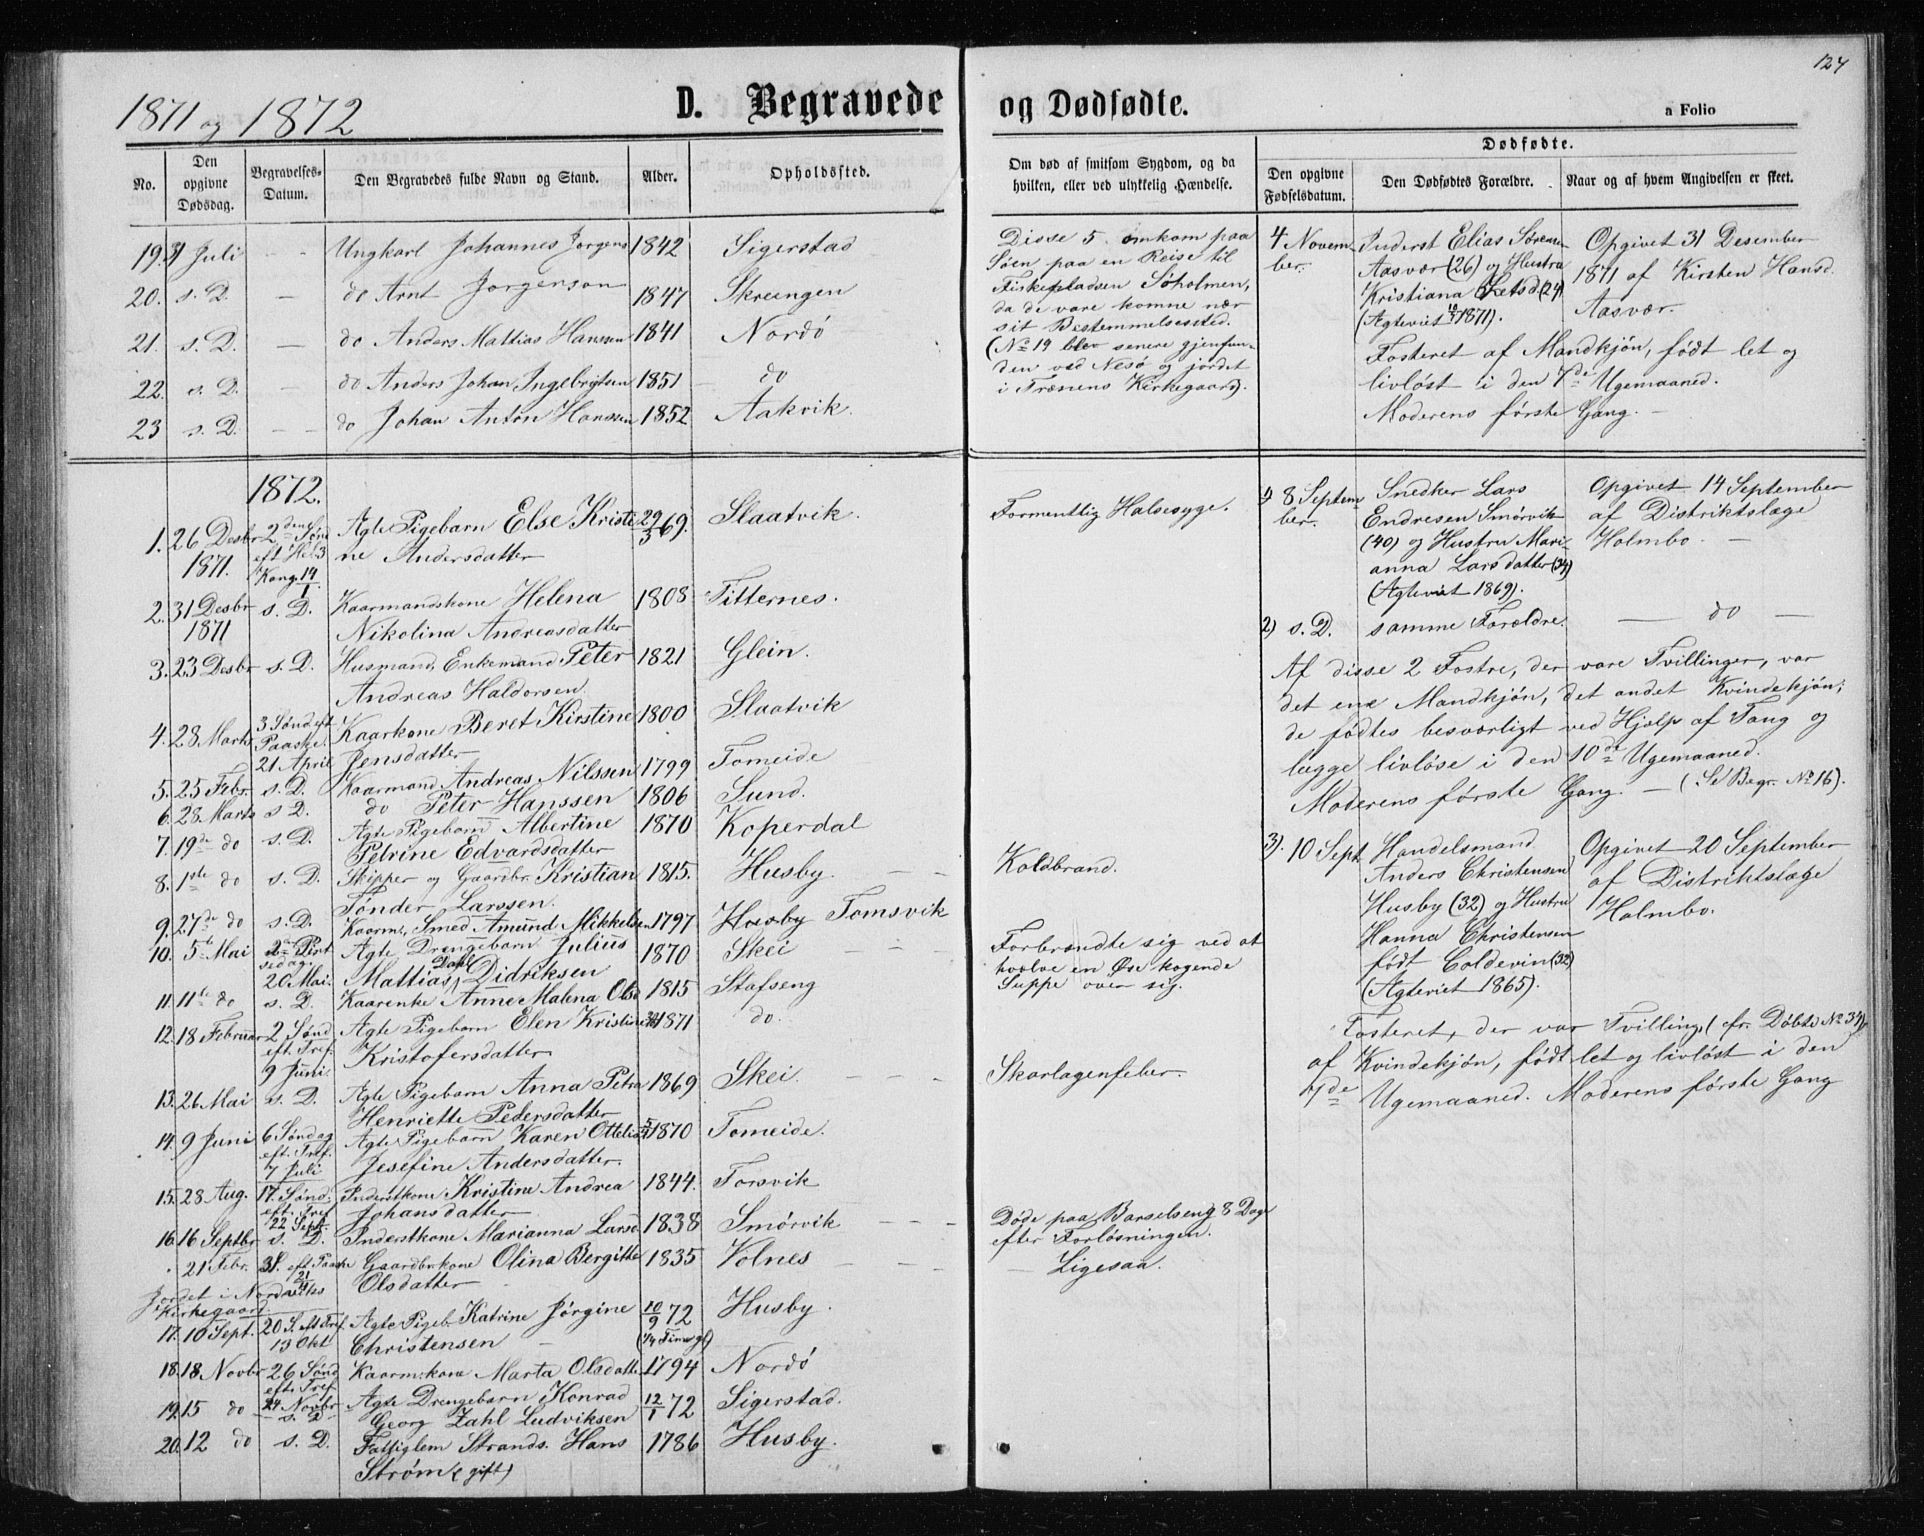 1871 og 1872
D. Begravede
No.
Den opgivne Dødsdag.
Begravelses-Datum.
Den Begravedes fulde Navn og Stand.
Alder.
Opholdssted.
19. 31 Juli - - Ungkarl Johannes Jørgens 1842 Sigerstad
20. s. D. — do Arnt Jørgensen 1847 Skreingen
21. s. D. — do Anders Mattias Hanssen 1841 Nordö
22. s. D. — do Anders Johan Ingebrigtsen 1851 do
23 s. D. — do Johan Anton Hanssen 1852 Aakvik.
1872.
1. 26 Desbr 2den Sønd Ægte Pigebarn Else Kristi 29/3 69. Slaatvik.
1871. eft Hel 3 ne Andersdatter
Kong. 14/1
2. 31 Desbr s. D. Kaarmandskone Helena 1808 Titternes.
1871 Nikolina Andreasdatter
3. 23 Desbr s. D. Husmand, Enkemand Peter 1821 Glein.
Andreas Haldorsen
4. 28 Marts 3 Sønd eft Kaarkone Beret Kirstine 1800 Slaatvik
Paaske.
21 April Jensdatter
5. 25 Febr. s. D. Kaarmand Andreas Nilssen 1799 Tomeide
6. 28. Marts s D. do Peter Hanssen 1806 Sund.
7. 19de do s. D. Ægte Pigebarn Albertine 1870 Koperdal
Petrine Edvardsdatter
8. 1ste do s. D. Skipper og Gaardbr. Kristian 1815. Husby. — —
Tønder Larssen.
9. 27de do s. D. Kaarm., Smed Amund Mikkelsen 1797 Husby Tomsvik
10. 5te Mai 2den Pint Ægte Drengebarn Julius 1870 Skei — —
sedag
20 Mai. Mattias Dahl Didriksen
11. 11te do s. D. Kaarenke Anne Malena Olsd 1815 Stafseng
12. 18 Februar 2 Sønd Ægte Pigebarn Elen Kristine 1871 do.
eft. Tref. Kristofersdatter
9 Juni
13. 26 Mai s. D. Ægte Pigebarn Anna Petra 1869 Skei. — — —
Henriette Pedersdatter
14. 9 Juni 6 Søndag Ægte Pigebarn Karen Ottelia 1870 Tomeide.
eft. Tref.
7 Juli Jesefine Andersdatter.
15. 28 Aug. 17. Sønd. Inderstkone Kristine Andrea 1844. Forsvik
eft. Tref Johansdatter
22 Sept.
16. 16 Septbr s. D. Inderstkone Marianna Larsd 1838 Smörvik — — —
21 Febr. 3 S. eft Paaske Gaardbr.kone Olina Bergitte 1835 Volnes — — —
21/4 Olsdatter
Jordet i Nordviks
Kirkegaard.
17. 10 Sept. 20 S. eft Tref. Ægte Pigeb. Katrine Jörgine 10/9 72 Husby.
13 Okt Christensen — (1/4 Time gl)
18. 18 Novbr 26 Sønd Kaarm:kone Marta Olsdatter 1794 Nordö
eft. Tref
24 Novbr
19. 15 do s. D. Ægte Drengebarn Konrad 12/1 72 Sigerstad.
Georg Zahl Ludviksen
20. 12 do s. D. Fattiglem Strands. Hans 1786 Husby.
Strøm (gift)
127
og Dødfødte.
a Folio
Om død af smitsom Sygdom, og da hvilken, eller ved ulykkelig Hændelse.
Dødfødte.
Den opgivne Fødselsdatum.
Den Dødfødtes Forældre.
Naar og af hvem Angivelsen er skeet.
Disse 5 omkom paa
Söen paa en Reise til
Fiskepladsen Söholmen,
da de vare komne nær
sit Bestemmelsessted.
(No 19 blev senere gjenfun-
den ved Nesö og jordet
i Trænens Kirkegaard).
4 Novem-
ber.
Inderst Elias Sørensen
Aasvær (26) og Hustru
Kristiana (24)
(Ægteviet 1871).
Opgivet 31 Desember
1871 af Kirsten Hansd.
Aasvær.
Fosteret af Mandkjön, født let og
livløst i den 7de Ugemaaned.
Moderens første Gang. —
Formentlig Halsesyge.
1) 8 Septem-
ber.
Snedker Lars
Endresen Smörvik
(40) og Hustru Mari-
anna Larsdatter (34)
(Ægteviet 1869).
Opgivet 14 September
af Distriktslæge
Holmbo. —
2) s. D. samme Forældre. — do —
Af disse 2 Fostre, der vare Tvillinger, var
det ene Mandkjön, det andet Kvindekjön;
de fødtes besværligt ved Hjælp af Tang og
lægge livløse i den 10de Ugemaaned.
Moderens første Gang. — (Se Begr. No 16).
Koldbrand.
3). 10 Sept. Handelsmand
Anders Christensen
Husby (32) og Hustru
Hanna Christensen
født Coldevin (32)
(Ægteviet 1865).
Opgivet 20 September
af Distriktslæge
Holmbo.
Forbrændte sig ved at
hvælve en Øse kogende
Suppe over sig.
Fosteret, der var Tvilling (cfr. Døbte No 34),
af Kvindekjön, født let og livløst i den
7de Ugemaaned. Moderens første Gang
Skarlagenfeber.
Døde paa Barselseng 8 Dage
efter Forløsningen.
— Ligesaa.